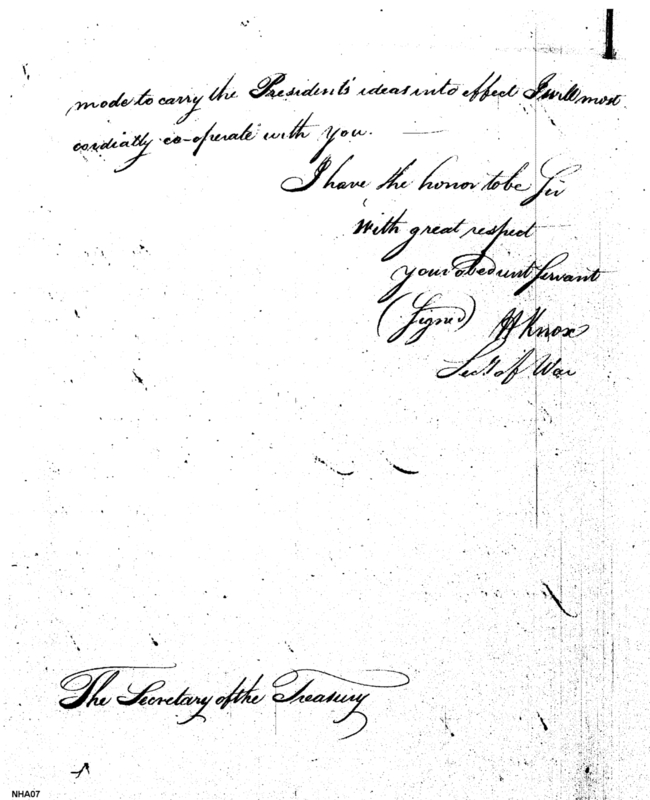 mode to carry the President's ideas into effect I will most
cordially co-operate with you.
I have the honor to be Sir
With great respect
your obedient Servant
(Signed) H Knox
Secy of War
The Secretary of the Treasury
NHA07